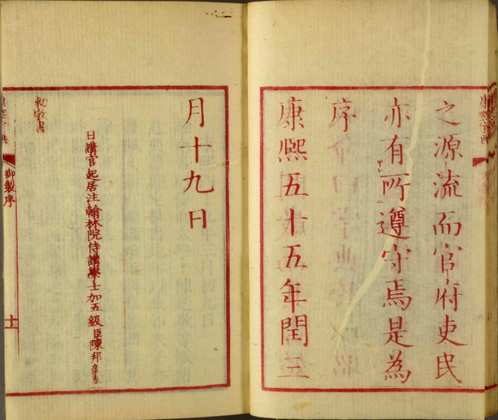 之源流而官府吏民
亦有所遵守焉是為
序
康熙五十五年閏三
月十九日
日講官起居注翰林院侍講學士加五級臣陳邦彥奉
敕敬書
御製序
十一